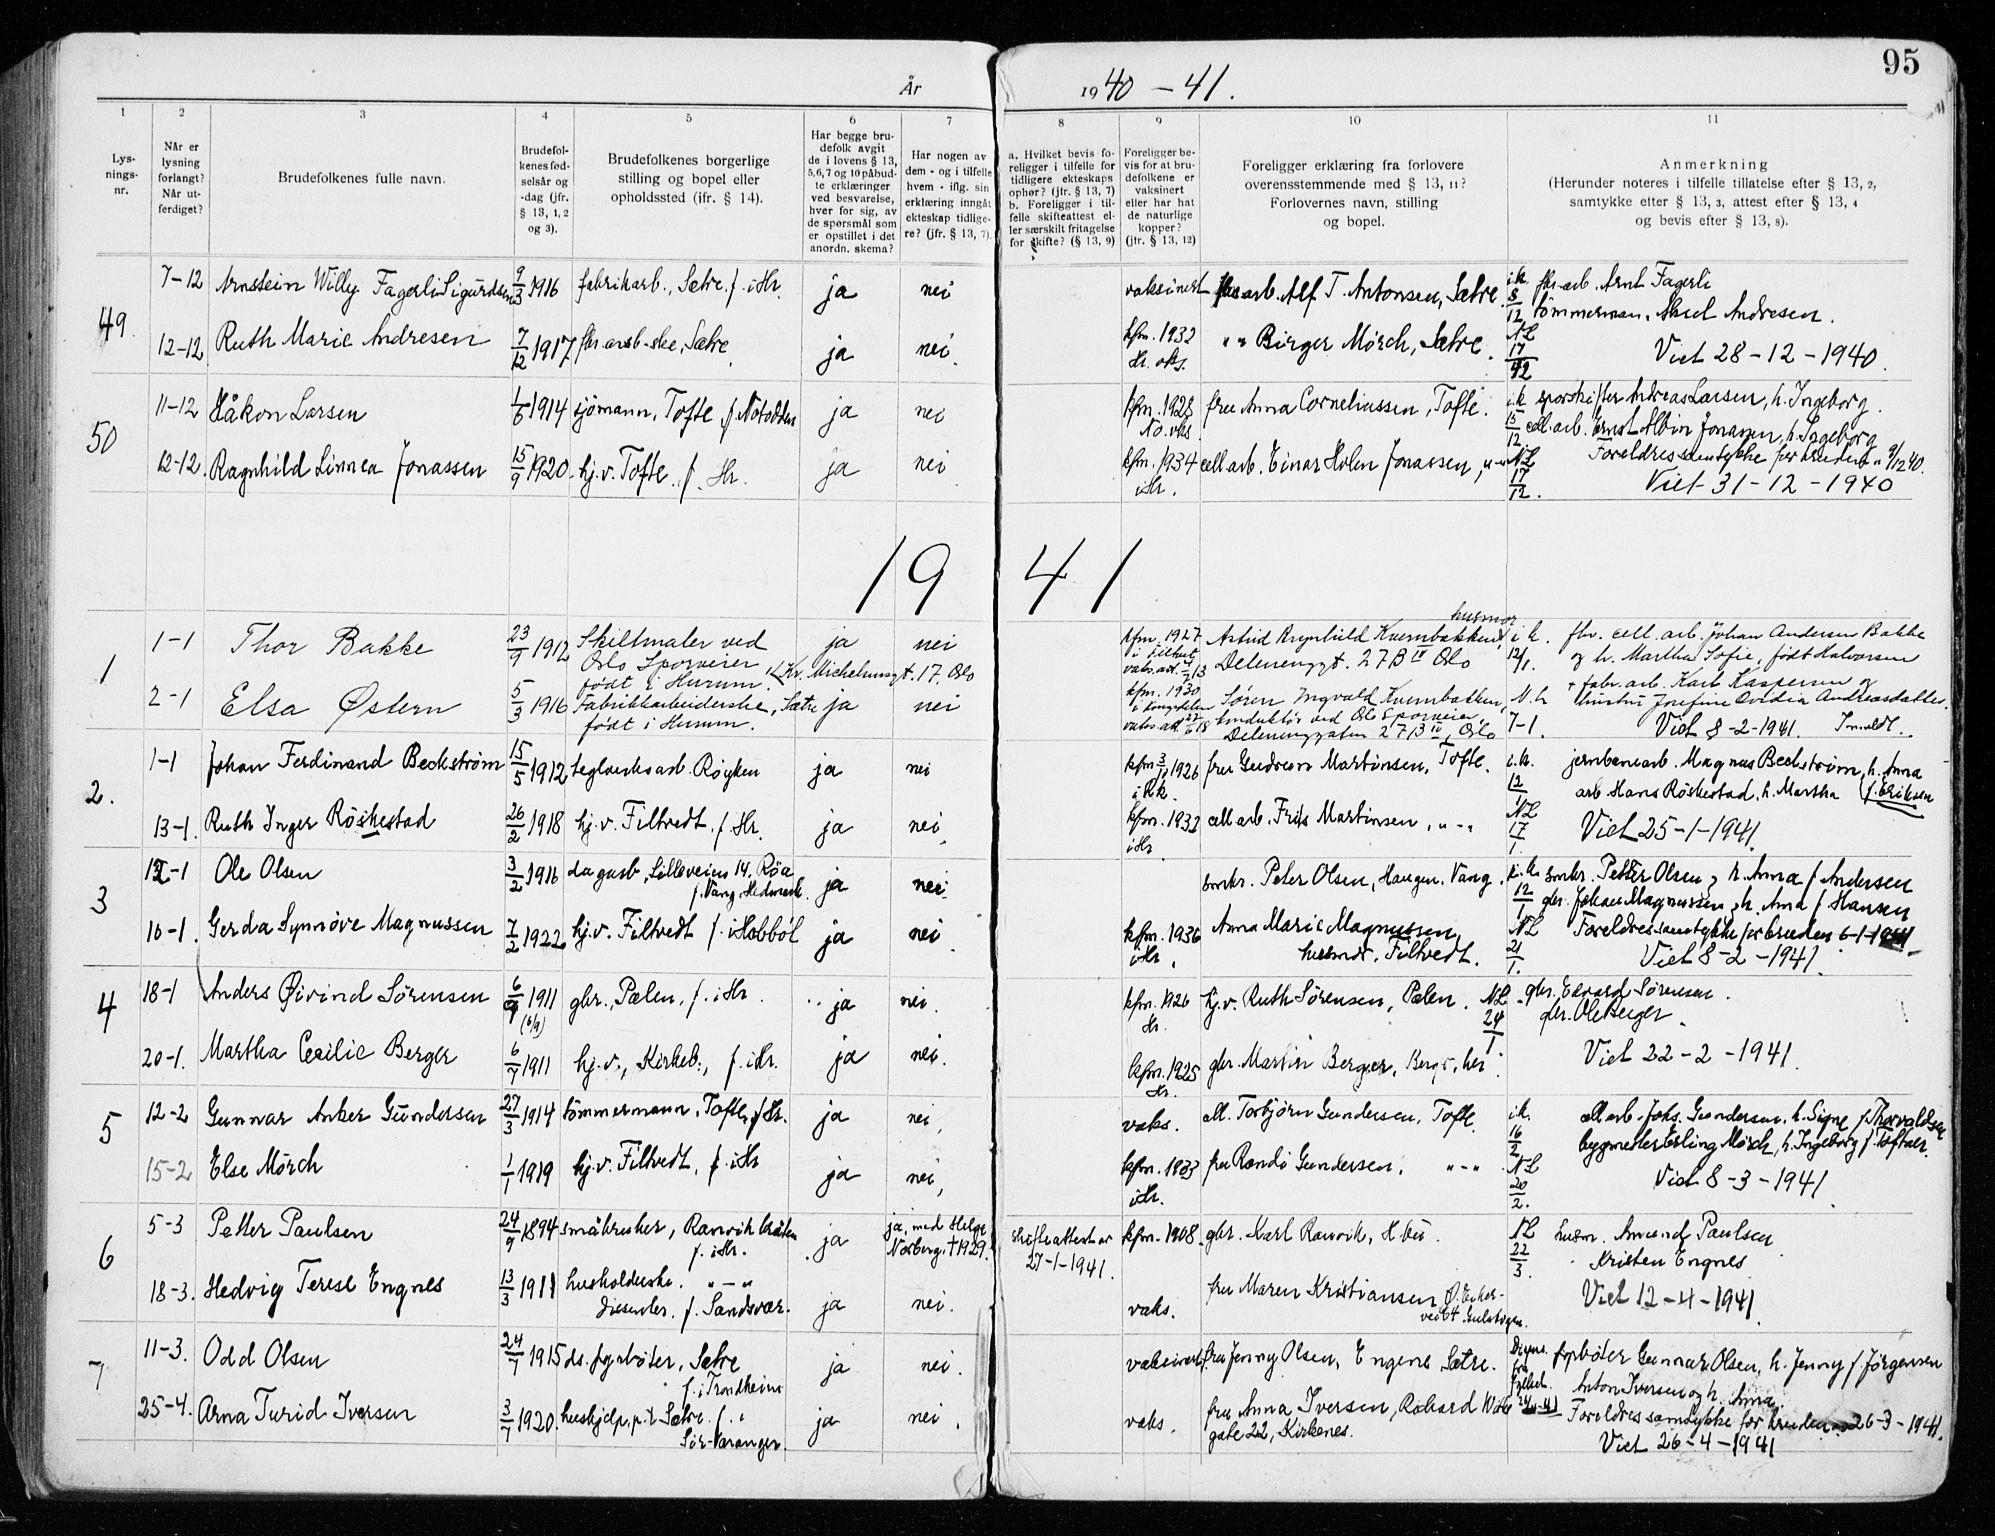 95
År 1940 – 41.
1 2 3 4 5 6 7 8 9 10 11
Lys-
nings-
nr.
Når er
lysning
forlangt?
Når ut-
ferdiget?
Brudefolkenes fulle navn.
Brudefol-
kenes fød-
selsår og
-dag (jfr.
§ 13, 1, 2
og 3).
Brudefolkenes borgerlige
stilling og bopel eller
opholdssted (jfr. § 14).
Har begge bru-
defolk avgit
de i lovens § 13,
5,6,7 og 10 påbud-
te erklæringer
ved besvarelse,
hver for sig, av
de spørsmål som
er opstillet i det
anordn. skema?
Har nogen av
dem - og i tilfelle
hvem - iflg. sin
erklæring inngåt
ekteskap tidlige-
re? (jfr. § 13, 7).
a. Hvilket bevis fo-
religger i tilfelle for
tidligere ekteskaps
ophør? (jfr. § 13, 7)
b. Foreligger i til-
felle skifteattest el-
ler særskilt fritagelse
for skifte? (§ 13, 9)
Foreligger be-
vis for at bru-
defolkene er
vaksinert
eller har hat
de naturlige
kopper?
(jfr. § 13, 12)
Foreligger erklæring fra forlovere
overensstemmende med § 13, 11?
Forlovernes navn, stilling
og bopel.
Anmerkning
(Herunder noteres i tilfelle tillatelse efter § 13, 2,
samtykke efter § 13, 3, attest efter § 13, 4
og bevis efter § 13, 8).
49.
7-12 Arnstein Willy Fagerli Sigurdsen 9/3 1916 fabrikarb., Sætre, f. i Hr. ja nei vaksinert fbr.arb. Alf T. Antonsen, Sætre. i.k. 8/12 fbr.-arb. Arnt Fagerli
tömmerman, Aksel Andresen.
12-12 Ruth Marie Andresen 7/12 1917 fbr.arb-ske, Sætre. ja nei. kfm. 1932 Hr. " " Birger Mörch, Sætre. NL 17/12 Viet 28-12-1940.
50
11-12 Håkon Larsen 1/6 1914 sjömann, Tofte, f. Notodden ja nei kfm. 1928 No. vks. fru Anna Corneliussen, Tofte. i.k. 15/12 sporskifter Andreas Larsen, h. Ingeborg.
cell.arb. Ernst Albin Jonassen, h. Ingeborg
12-12. Ragnhild Linnea Jonassen 15/9 1920. hj.v. Tofte. f. Hr. ja nei kfm. 1934 i Hr. cell arb. Einar Holm Jonassen, "-" NL 17/12. Foreldres samtykke for bruden 9/12 40.
Viet 31-12-1940
1941
1
1-1 Thor Bakke 23/9 1912 Skiltmaler ved
Oslo Sporveier
født i Hurum. Kr. Michelsensgt. 17. Oslo ja nei kfm. 1927 i Filtvet Astrid Ragnhild Kvernbakken, husmor
Delenenggt. 27 B IV Oslo i k. 12/1. fbr. cell. arb. Johan Andersen Bakke
og h. Martha Sofie, født Halvorsen
2-1 Elsa Østern 5/3 1916 Fabrikkarbeiderske, Sætre
født i Hurum. ja nei kfm. 1930 i Kongsdelen Søren Ingvald Kvernbakken,
konduktør ved Oslo Sporveier,
Delenenggaten 27 B IV, Oslo N.L 7-1. fabr. arb. Karl Kaspersen og
hustru Josefine Ovidia Andreasdatter.
Viet 8-2-1941. Innmeldt.
2.
1-1 Johan Ferdinand Beckstrøm 15/5 1912 teglverksarb. Røyken ja nei kfm 3/10 1926 i Rk. fru Gudrun Martinsen, Tofte. i.k. 12/1 jernbanearb. Magnus Beckstrøm, h. Anna f. Eriksen
13-1. Ruth Inger Röskestad 26/2 1918 hj.v. Filtvedt, f. Hr. ja nei, kfm. 1932 i Hr cell arb. Frits Martinsen, "-" NL 17/1. arb Hans Röskestad, h. Martha
Viet 25-1-1941.
3
12-1 Ole Olsen 3/2 1916 dagarb, Lilleveien 14. Röa
f. Vang, Hedmark. ja nei. smbr. Peter Olsen, Haugen, Vang. i.k. 12/1 smbr. Petter Olsen og h. Anna f. Andersen
gbr. Johan Magnussen, h. Anna f. Hansen
16-1. Gerda Synnøve Magnussen 7/2 1922 hj.v. Filtvedt f. i Hobböl ja nei. kfm. 1936 i Hr. Anna Marie Magnussen,
husmor, Filtvedt. NL 21/1. Foreldres samtykke for bruden 6-1-1941
Viet 8-2-1941.
4
18-1 Anders Øivind Sörensen 6/9 1911
(6/9) gbr., Pælen, f. i Hr. ja nei. kfm. 1926 Hr. hj.v. Ruth Sörensen, Pælen. NL 24/1 gbr. Edvard Sörensen.
gbr. Ole Berger.
20-1. Martha Cecilie Berger 6/7 1911 hj.v., Kirkeb., f. i Hr. ja nei. kfm. 1925 Hr. gbr. Martin Berger, Berger, her. Viet 22-2-1941.
5
12-2 Gunnar Anker Gundersen 27/3 1914 tömmermann, Tofte, f. Hr. ja nei, vaks. cell. Torbjörn Gundersen, Tofte. i.k. 16/2 cell arb. Johs. Gundersen, h. Signe f. Thorvaldsen
byggmester Erling Mörch, h. Ingeborg f. Toftner.
15-2 Else Mörch 1/1 1919 hj.v. Filtvedt, f. i Hr ja nei, kfm. 1933 i Hr. fru Randi Gundersen, "-" NL 20/2. Viet 8-3-1941.
6
5-3 Petter Paulsen 24/9 1894 småbruker, Ranvikbråten
f. i Hr. ja ja, med Helga
Norberg, † 1929. skifteattest av
27-1-1941. kfm. 1908. gbr. Karl Ranvik, H. NL 22/3. husm. Amund Paulsen
Kristen Engnes
18-3. Hedvig Terese Engnes 13/3 1911 husholderske. "-"
dissenter. f. Sandsvær. ja nei. vaks. fru Maren Kristiansen, Ø. Eiker-
Gulskogen. Viet 12-4-1941.
7
11-3. Odd Olsen 24/7 1915 ds. fyrbøter, Sætre
f. i Trondheim ja nei. vaksinert, fru Jenny Olsen, Engene Sætre. Dispens. fra fyrbøter Gunnar Olsen, h. Jenny f. Jörgensen
25-4. Arna Turid Iversen 3/7 1920. hushjelp, p.t. Sætre. f. i
Sör-Varanger. ja nei. vaks. fru Anna Iversen, Rokard
gate 22, Kirkenes. Anton Iversen og h. Anna.
Foreldres samtykke for bruden 26-3-1941.
Viet 26-4-1941